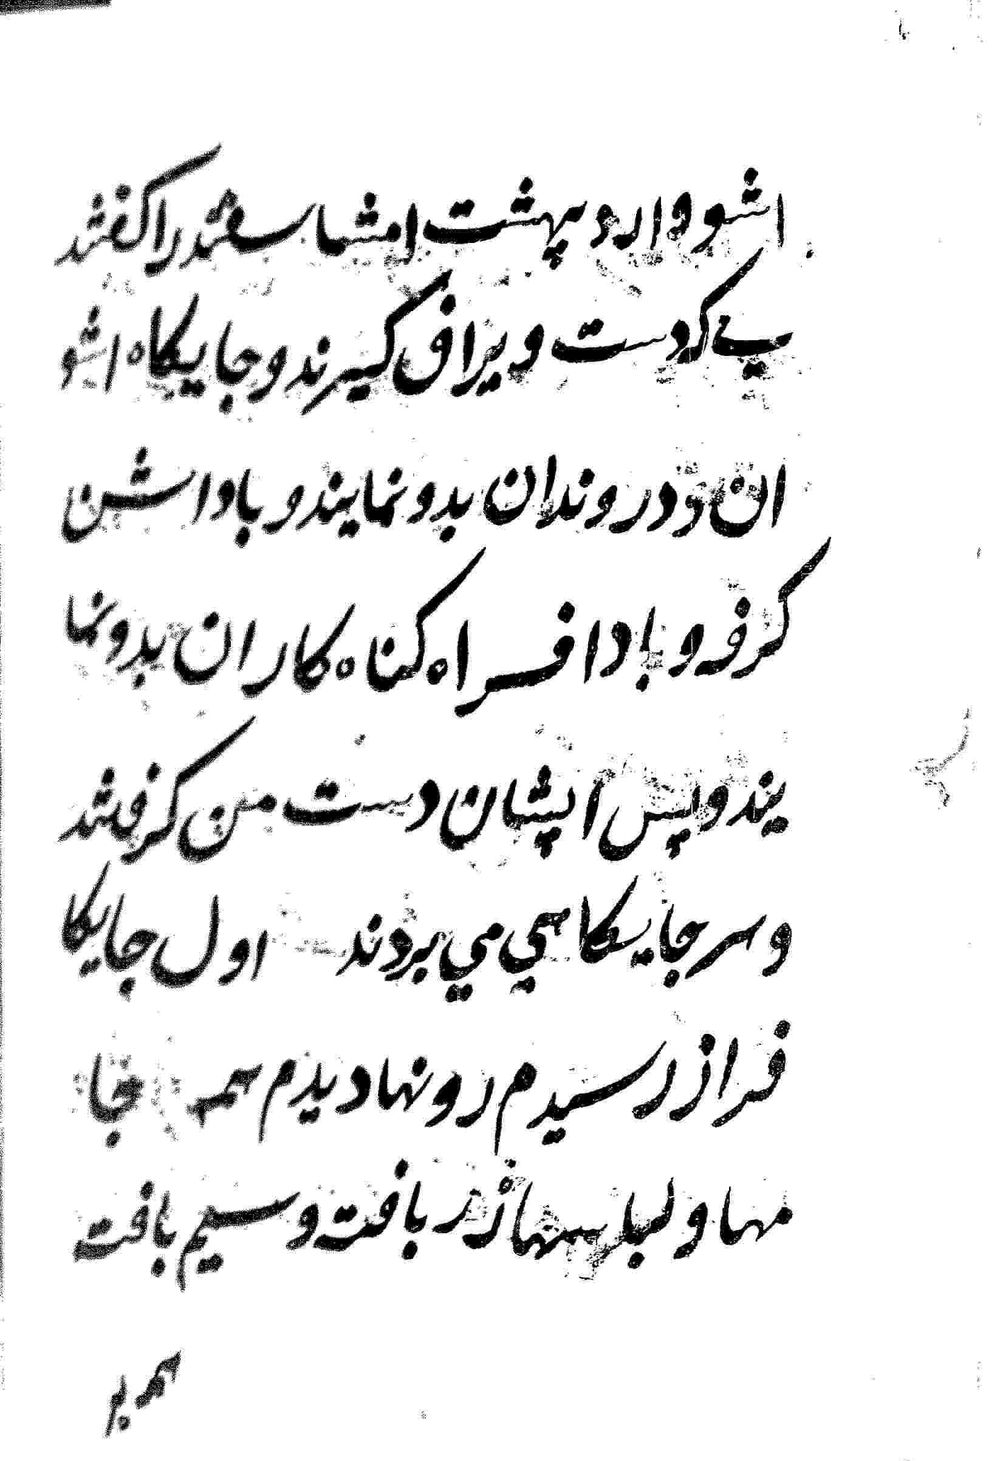 اشو و اردبهشت امشاسفندرا کفتند
یی که دست ویراف کیرند و جایکاه اشو
ان و دروندان بدو نمایند و باداشن
کرفه و بادافسراه کناه کاران بدو نما
یند و پس ایشان دست من کرفتند
و سر جایکاهی می بردند اول جایکا
فراز رسیدم رونها دیدم همه جا
مها و لباسها زر بافت و سیم بافت
همه بر